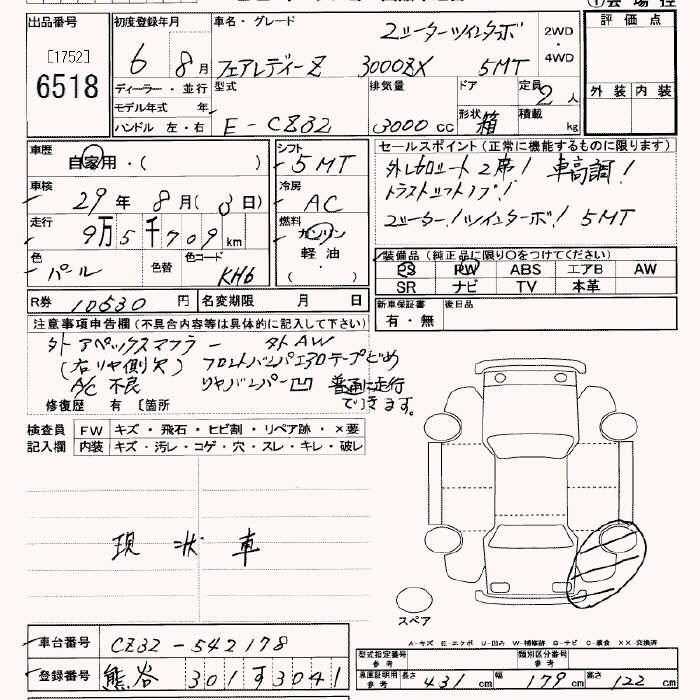 出品番号
[1752]
6518
初度登録年月
6 8月
車名・グレード
2シーターツインターボ
フェアレディーZ 3000ZX 5MT
2WD
・
4WD
評価点
外装 内装
ディーラー・並行
モデル年式 年
ハンドル 左・右
型式
E-CZ32
排気量
3000cc
ドア
形状 箱
定員 2人
積載 kg
車歴
自家用・( )
シフト
5MT
車検
29年 8月( 3日)
冷房
AC
走行
9万5千709km
燃料
ガソリン
軽油
( ・ )
色
パール
色替
色コード
KH6
R券 10530円 名変期限 月 日
セールスポイント(正常に機能するものに限ります)
2席! 車高調!
2シーター!ツインターボ! 5MT
装備品(純正品に限り○をつけてください)
PS PW ABS エアB AW
SR ナビ TV 本革
新車保証書
有・無
後日品
注意事項申告欄(不具合内容等は具体的に記入して下さい)
外アペックスマフラー 外AW
(右リヤ側欠) フロントバンパエアロテープどめ
A/C不良 リヤバンパー凹 普通に走行
できます。
修復歴 有 〔箇所
検査員
記入欄
FW キズ・飛石・ヒビ割・リペア跡・×要
内装 キズ・汚レ・コゲ・穴・スレ・キレ・破レ
現状車
スペア
A-キズ E-エクボ U-凹み W-補修跡 S-サビ C-腐食 XX-交換済
車台番号 CZ32-542178
登録番号 熊谷 301す3041
型式指定番号
参考
類別区分番号
参考
車庫証明用
参考
長さ 431cm 幅 179cm 高さ 122cm